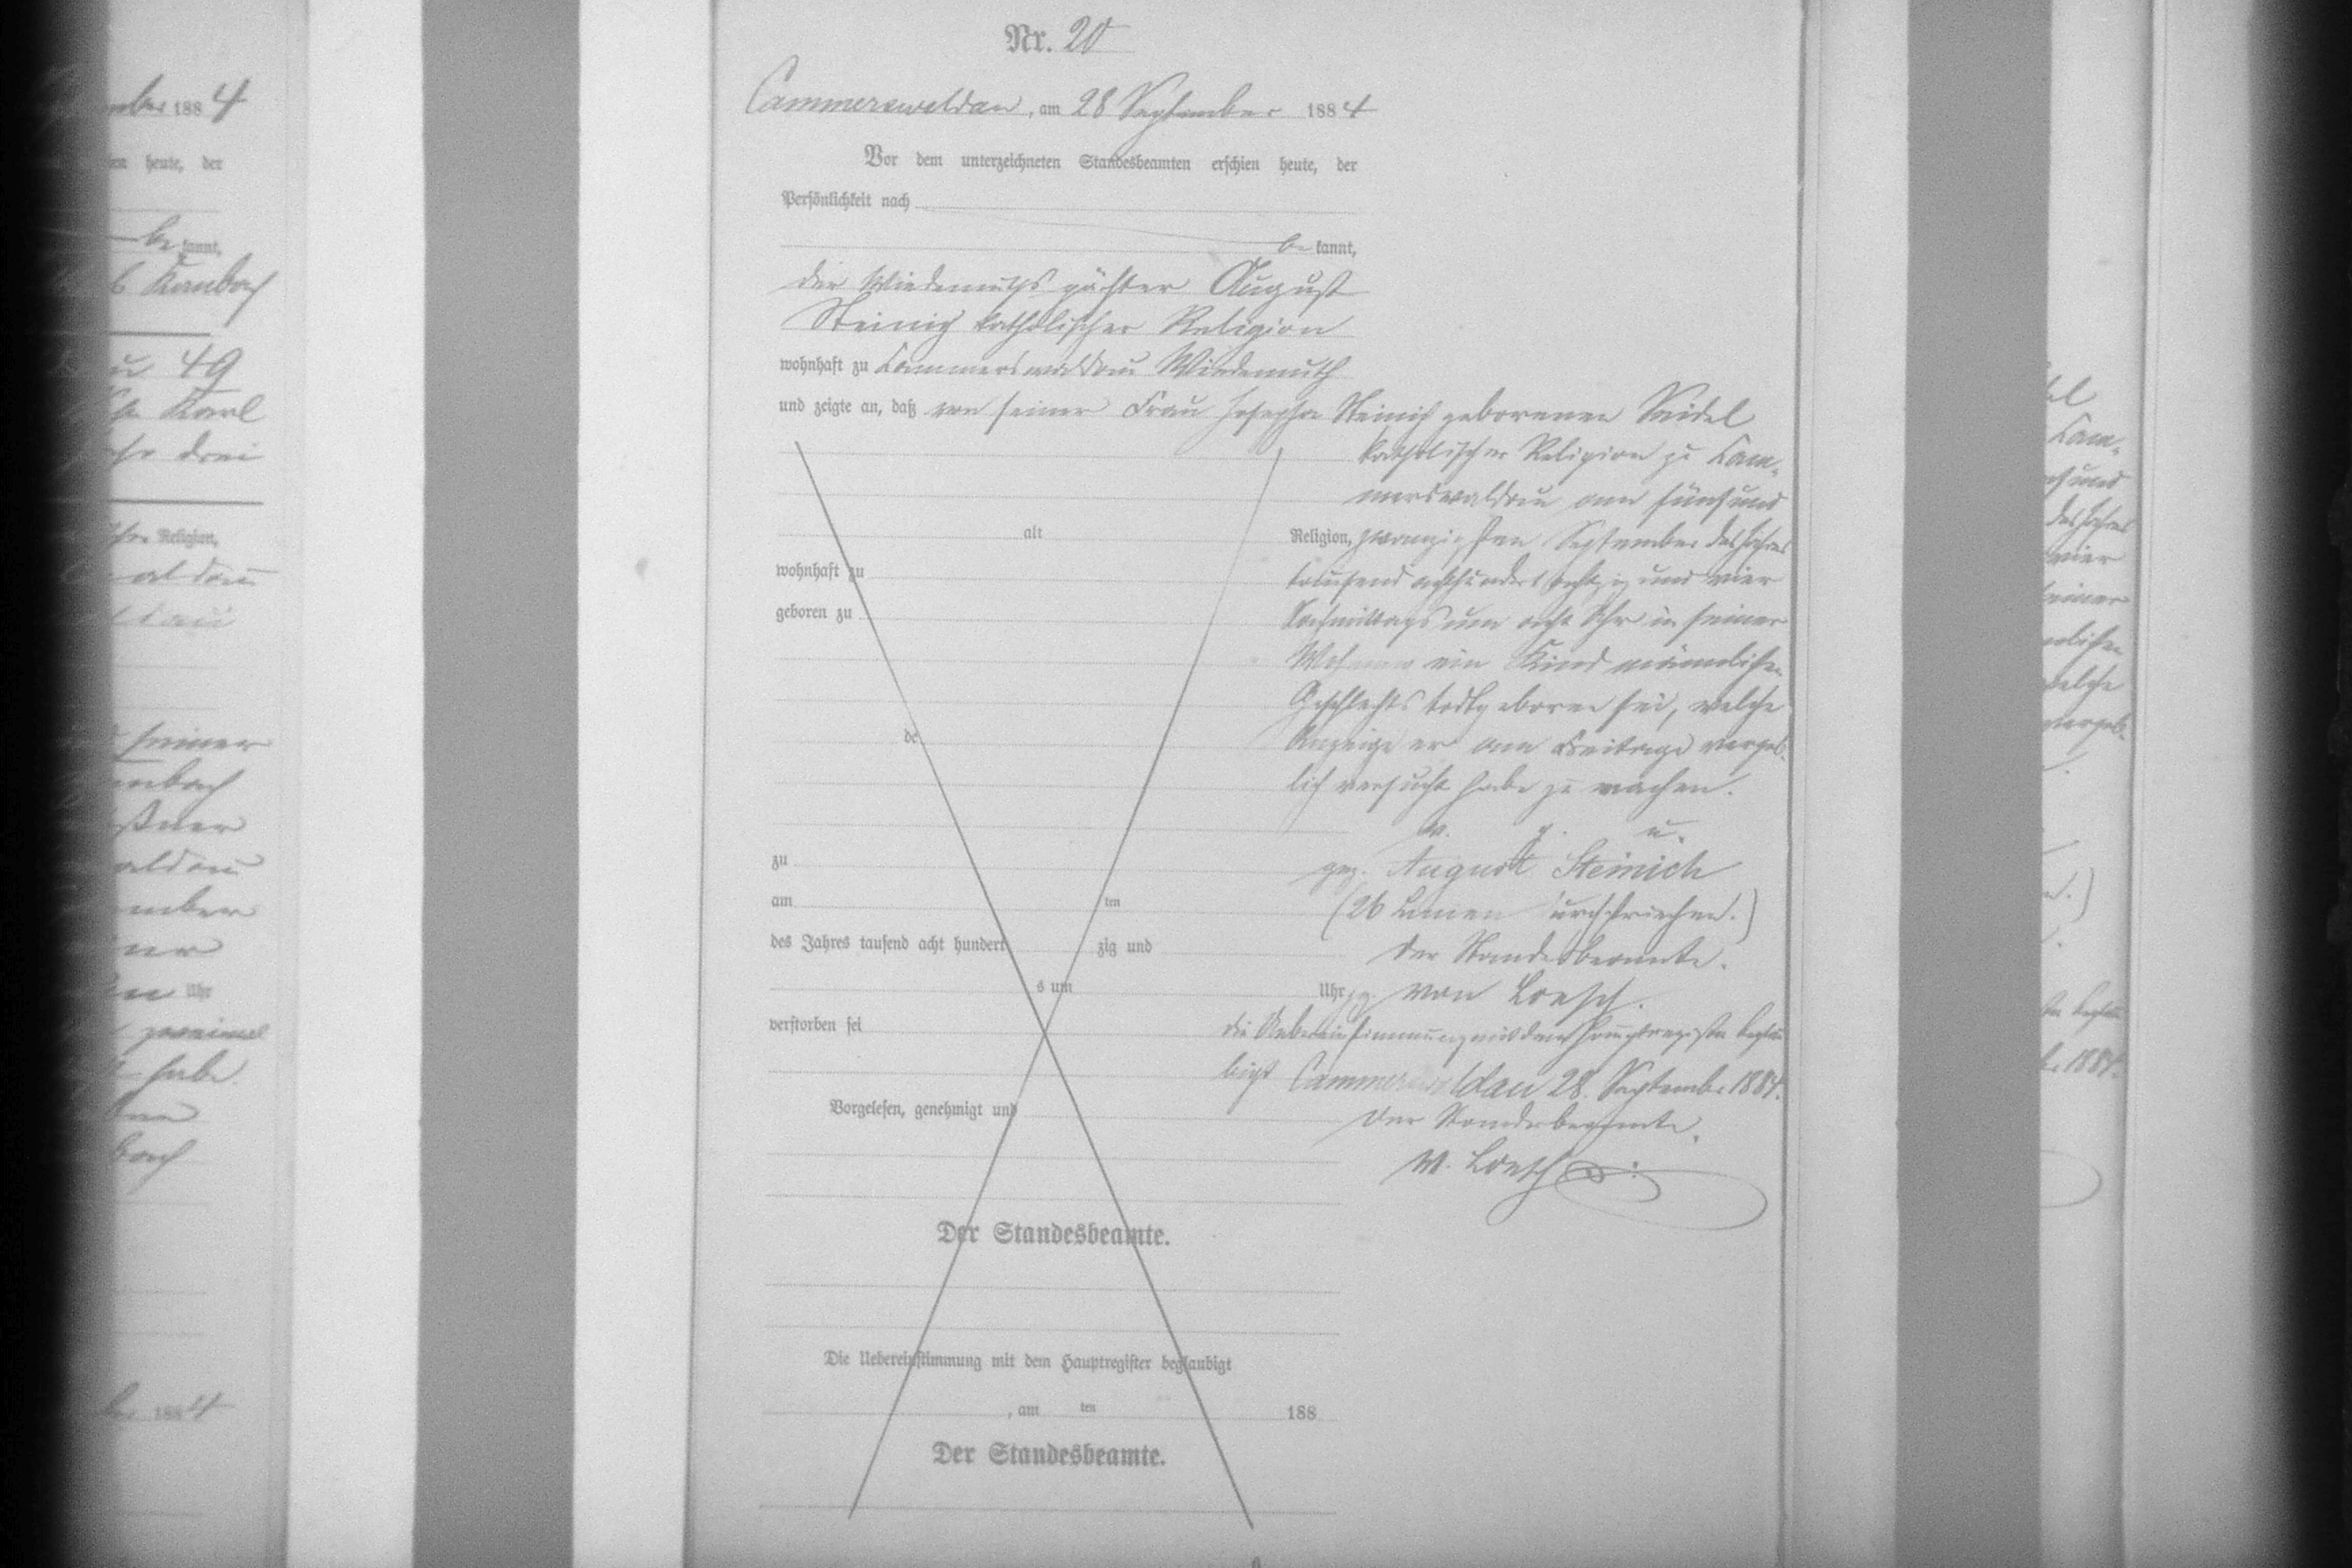 Nr. 20
Cammerswaldau, am 28 September 1884
Vor dem unterzeichneten Standesbeamten erschien heute, der
Persönlichkeit nach
be kannt,
der Wiedemuths pächter August
Steinich katholischer Religion
wohnhaft zu Cammerswaldau Wiedemuth
und zeigte an, daß von seiner Frau Josepha Steinich geborenen Seidel
katholischer Religion zu Cam-
merswaldau am fünfund
alt Religion, zwanzigsten September des Jahres
wohnhaft zu tausend achthundert achtzig und vier
geboren zu Nachmittags um acht Uhr in seiner
ein Kind männlichen
Geschlechts todtgeboren sei, welche
de Anzeige er am Freitage vergeb-
lich versucht habe zu machen.
v. g. u.
zu gez. August Steinich
am ten (26 Linien durchstrichen.)
des Jahres tausend acht hundert zig und Der Standesbeamte.
s um Uhr gz. von Loesch.
verstorben sei die Uebereinstimmung mit dem Hauptregister beglau
bigt Cammerswaldau 28. September 1884.
Vorgelesen, genehmigt und Der Standesbeamte.
v. Loesch
Der Standesbeamte.
Die Uebereinstimmung mit dem Hauptregister beglaubigt
, am ten 188
Der Standesbeamte.